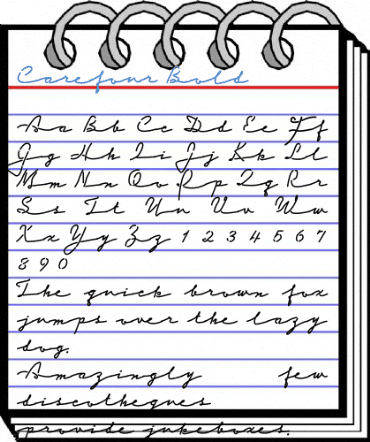 Carefour Bold
Aa Bb Cc Dd Ee Ff
Gg Hh Ii Jj Kk Ll
Mm Nn Oo Pp Qq Rr
Ss Tt Uu Vv Ww
Xx Yy Zz 1 2 3 4 5 6 7
8 9 0
The quick brown fox
jumps over the lazy
dog.
Amazingly few
discotheques
provide jukeboxes.